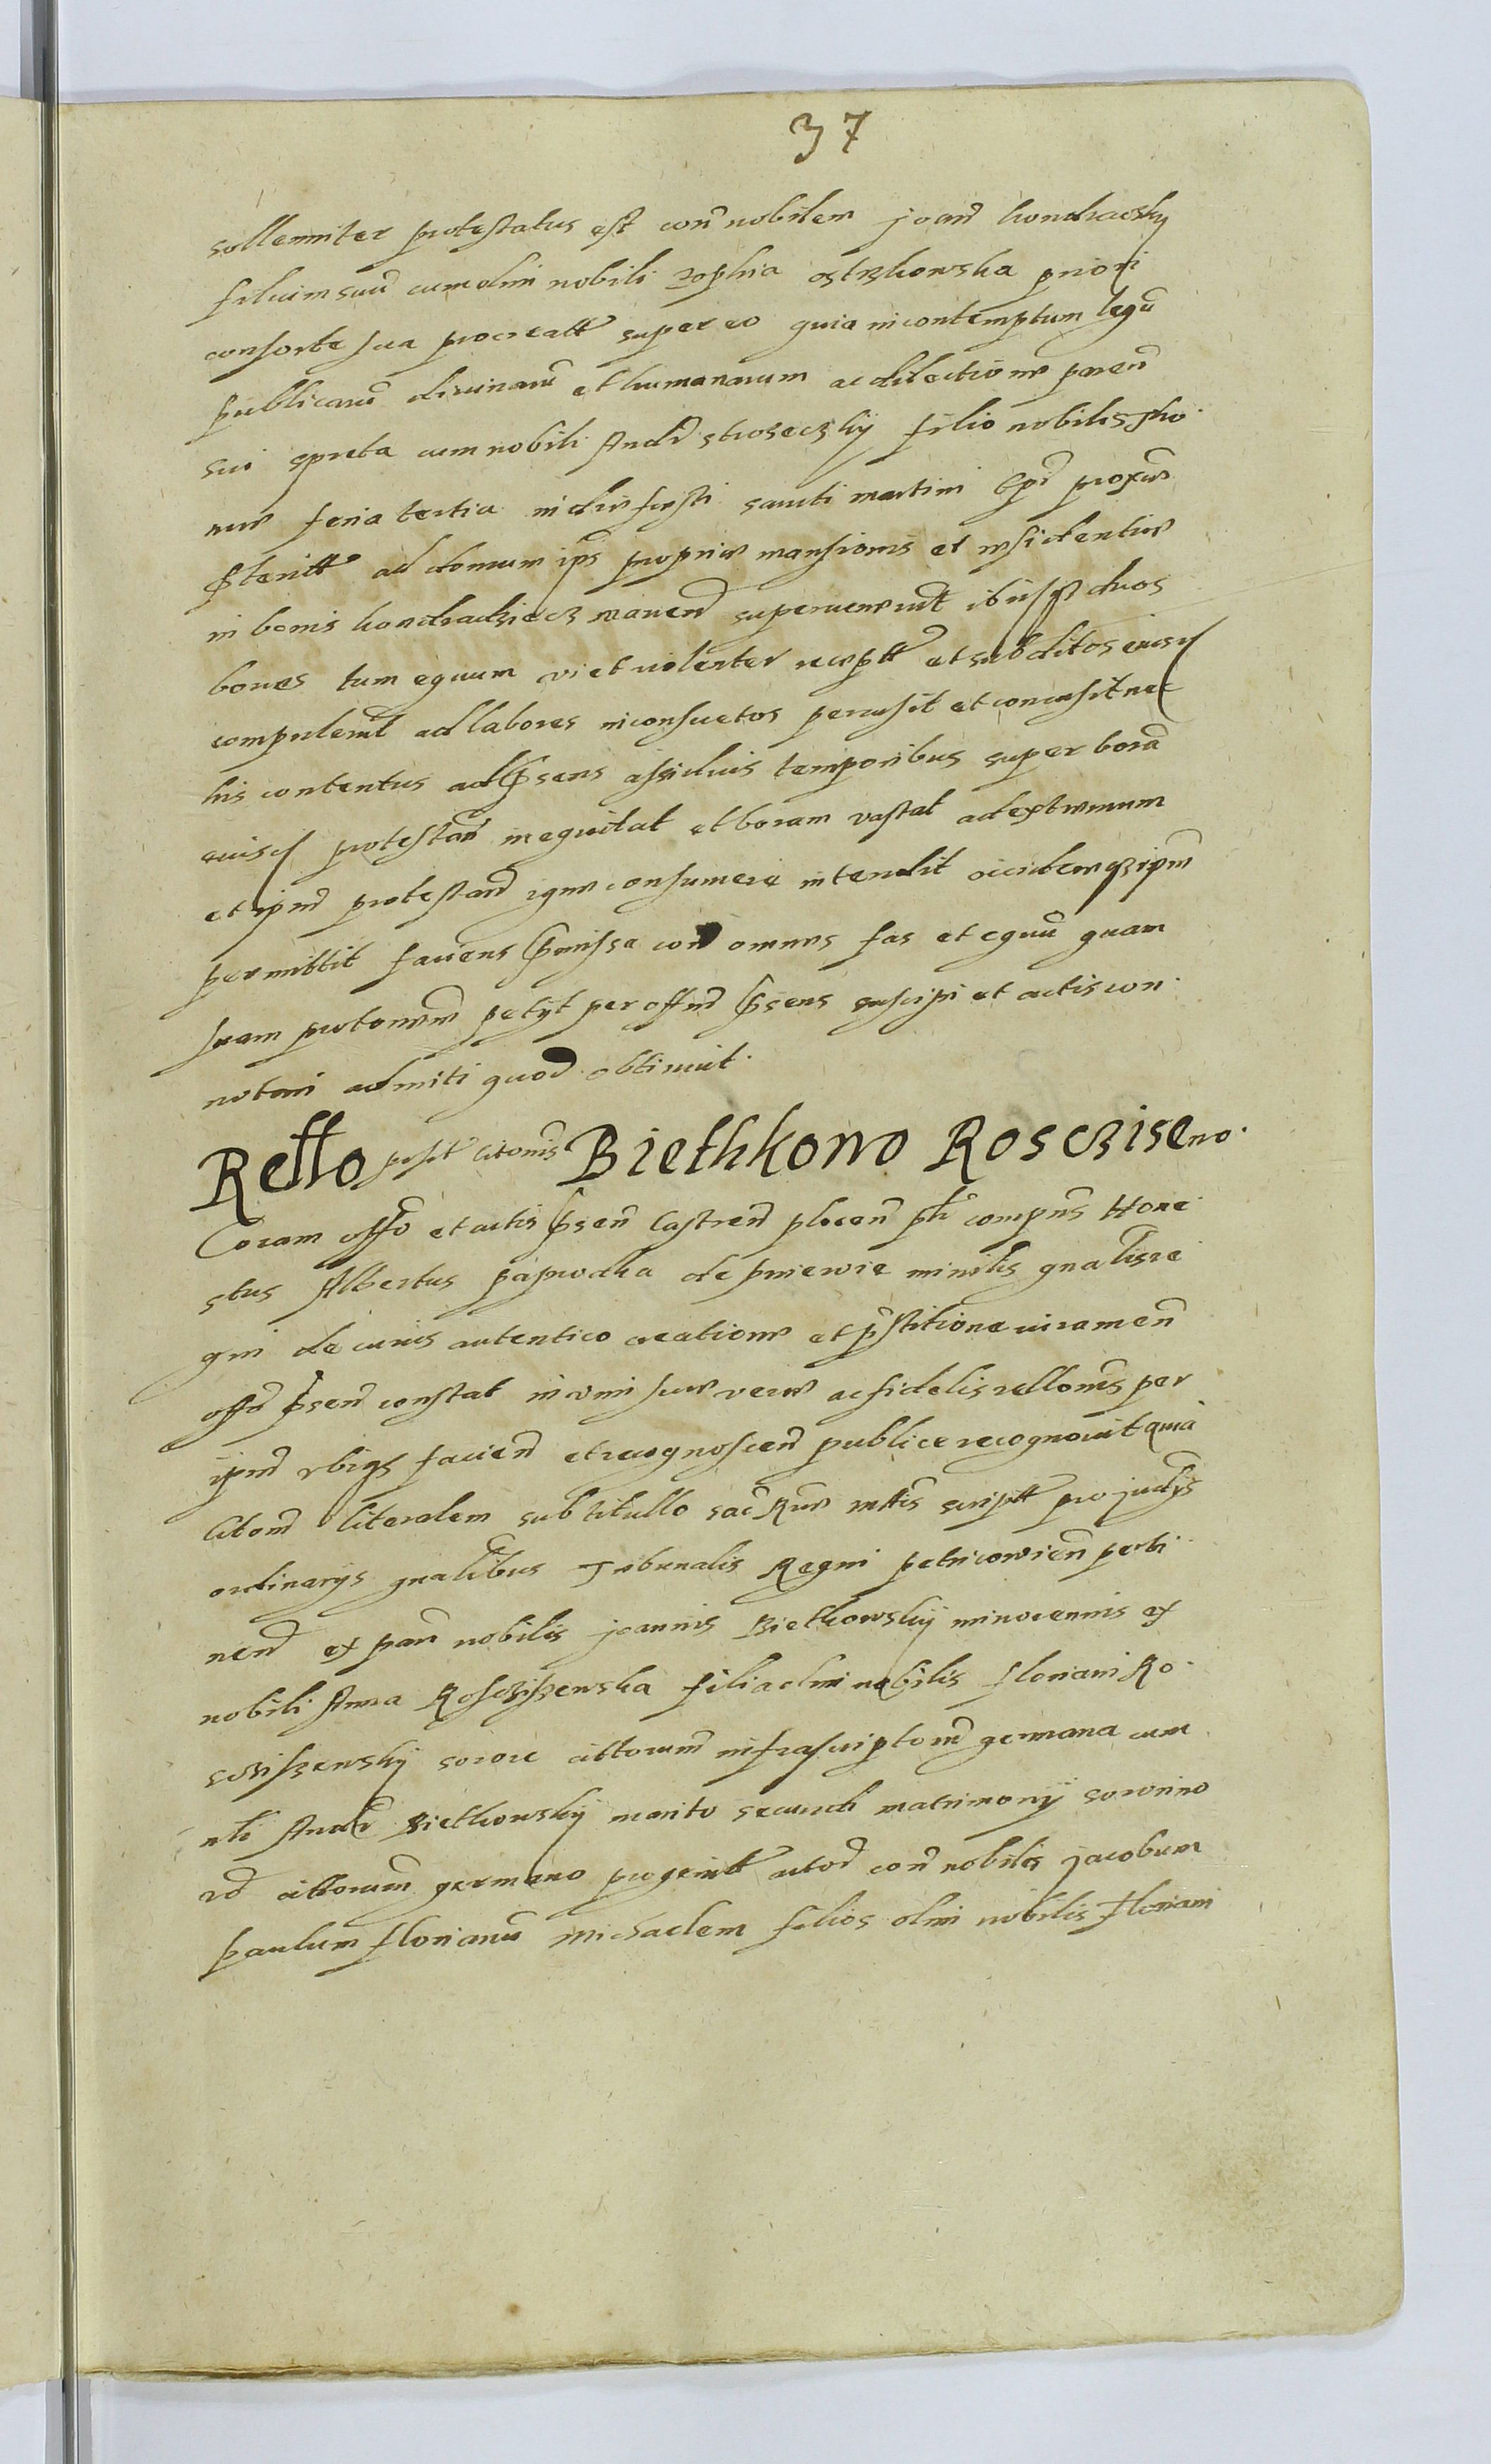 37
sollemniter protestatus est con nobilem joan kondracsky
filium suu cum olim nobili zophia ostrzkowska priori
consorte sua procreatt super eo quia in contemptum legu
publicaru divinaru et humanarum ac dilectione paren
sui spreta cum nobili Andr filio nobilis
feria tertia in die festi sancti martini Epi proxime
pteritt ad domum ips proprie mansionis et residentie
in bonis superuenerunt duos
boues tum equum vi et violenter receptt et subditos eiusd
compulerunt ad labores inconsuetos percusit et concusit nec
his contentus ad psens assiduis temporibus super bona
eiusd protestan inequitat et boram vastat ad extremum
et ipm protestan igne consumere intendit occidereqz ipm
permittit faciens pmissa con omnes fas et equu quam
suam protonem petyt per offm psens suscipi et actis con
notari admiti quod obtinuit
Retto posit citonis Biethkowo Roscziseno.
Coram offo et actis psen Castren plocen ph compns Hone
stus Albertus paprodka de pniewie minilis gnalis re
gni de cuius autentico creatione et pstitione iuramen
offo psen constat in vim sue vere ac fidelis rellonis per
ipm vbiqs facien et recognoscen publice recognouit quia
Citom literalem sub titullo sac Rme mttis scriptt pro judys
ordinarys gnalibus Tribunalis Regni petricowien perti
nen ex parte nobilis joannis Bietkowsky minorennis ex
nobili Anna Rosczissewska filia olim nobilis floriani Ro
sczissewsky sorore cittorum infrascriptorum germana cum
nli Andr Bietkowsky marito secundi matrimony sororino
cittorum germano progenitt con nobiles jacobum
paulum florianu Michaelem filios olim nobilis floriani